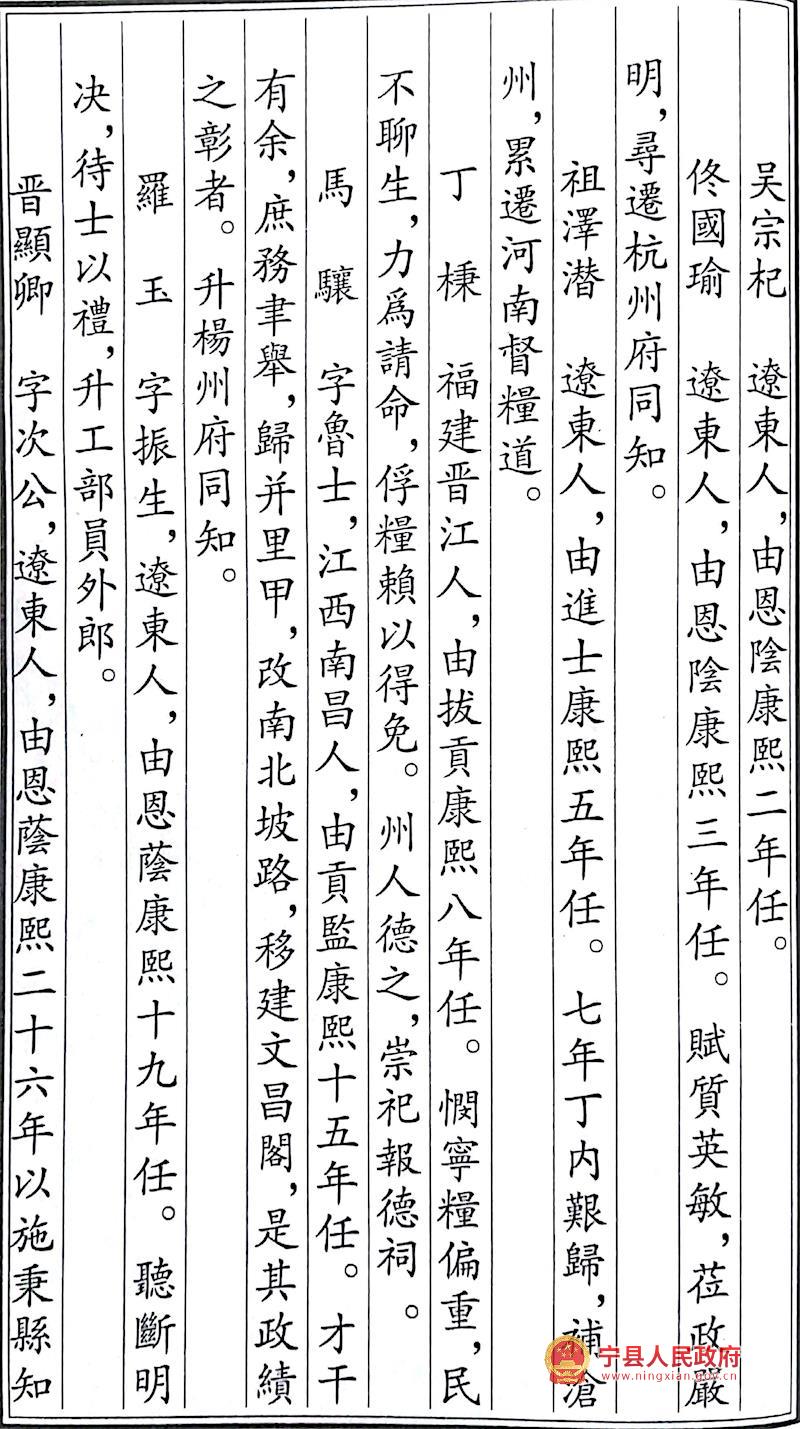 吴宗杞　遼東人，由恩陰康熙二年任。
佟國瑜　遼東人，由恩陰康熙三年任。賦質英敏，莅政嚴
明，尋遷杭州府同知。
祖澤潛　遼東人，由進士康熙五年任。七年丁内艱歸，補滄
州，累遷河南督糧道。
丁　棅　福建晋江人，由拔貢康熙八年任。憫寧糧偏重，民
不聊生，力爲請命，俘糧賴以得免。州人德之，崇祀報德祠。
馬　驤　字魯士，江西南昌人，由貢監康熙十五年任。才干
有余，庶務聿舉，歸并里甲，改南北坡路，移建文昌閣，是其政績
之彰者。升楊州府同知。
羅　玉　字振生，遼東人，由恩蔭康熙十九年任。聽斷明
决，待士以禮，升工部員外郎。
晋顯卿　字次公，遼東人，由恩蔭康熙二十六年以施秉縣知
宁县人民政府
www.ningxian.gov.cn